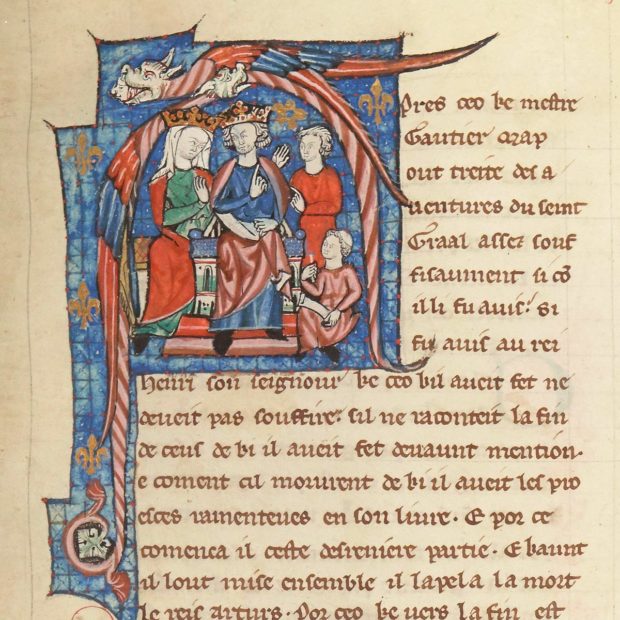 Apres ceo ke mestre
Gautier Map
out treite des a
uentures du seint
Graal assez souf
fisaument si cō
il li fu auis: si
fu auis au rei
henri son seignour ke ceo kil aueit fet ne
deueit pas souffire: sil ne raconteit la fin
de ceus de ki il aueit fet deuaunt mention.
e coment cil morurent de ki il aueit les pro
esces ramenteues en son liure. E por ce
comenca il ceste desreniere partie. E kaunt
il lout mise ensemble il lapela la mort
le reis arturs. Por ceo ke uers la fin est